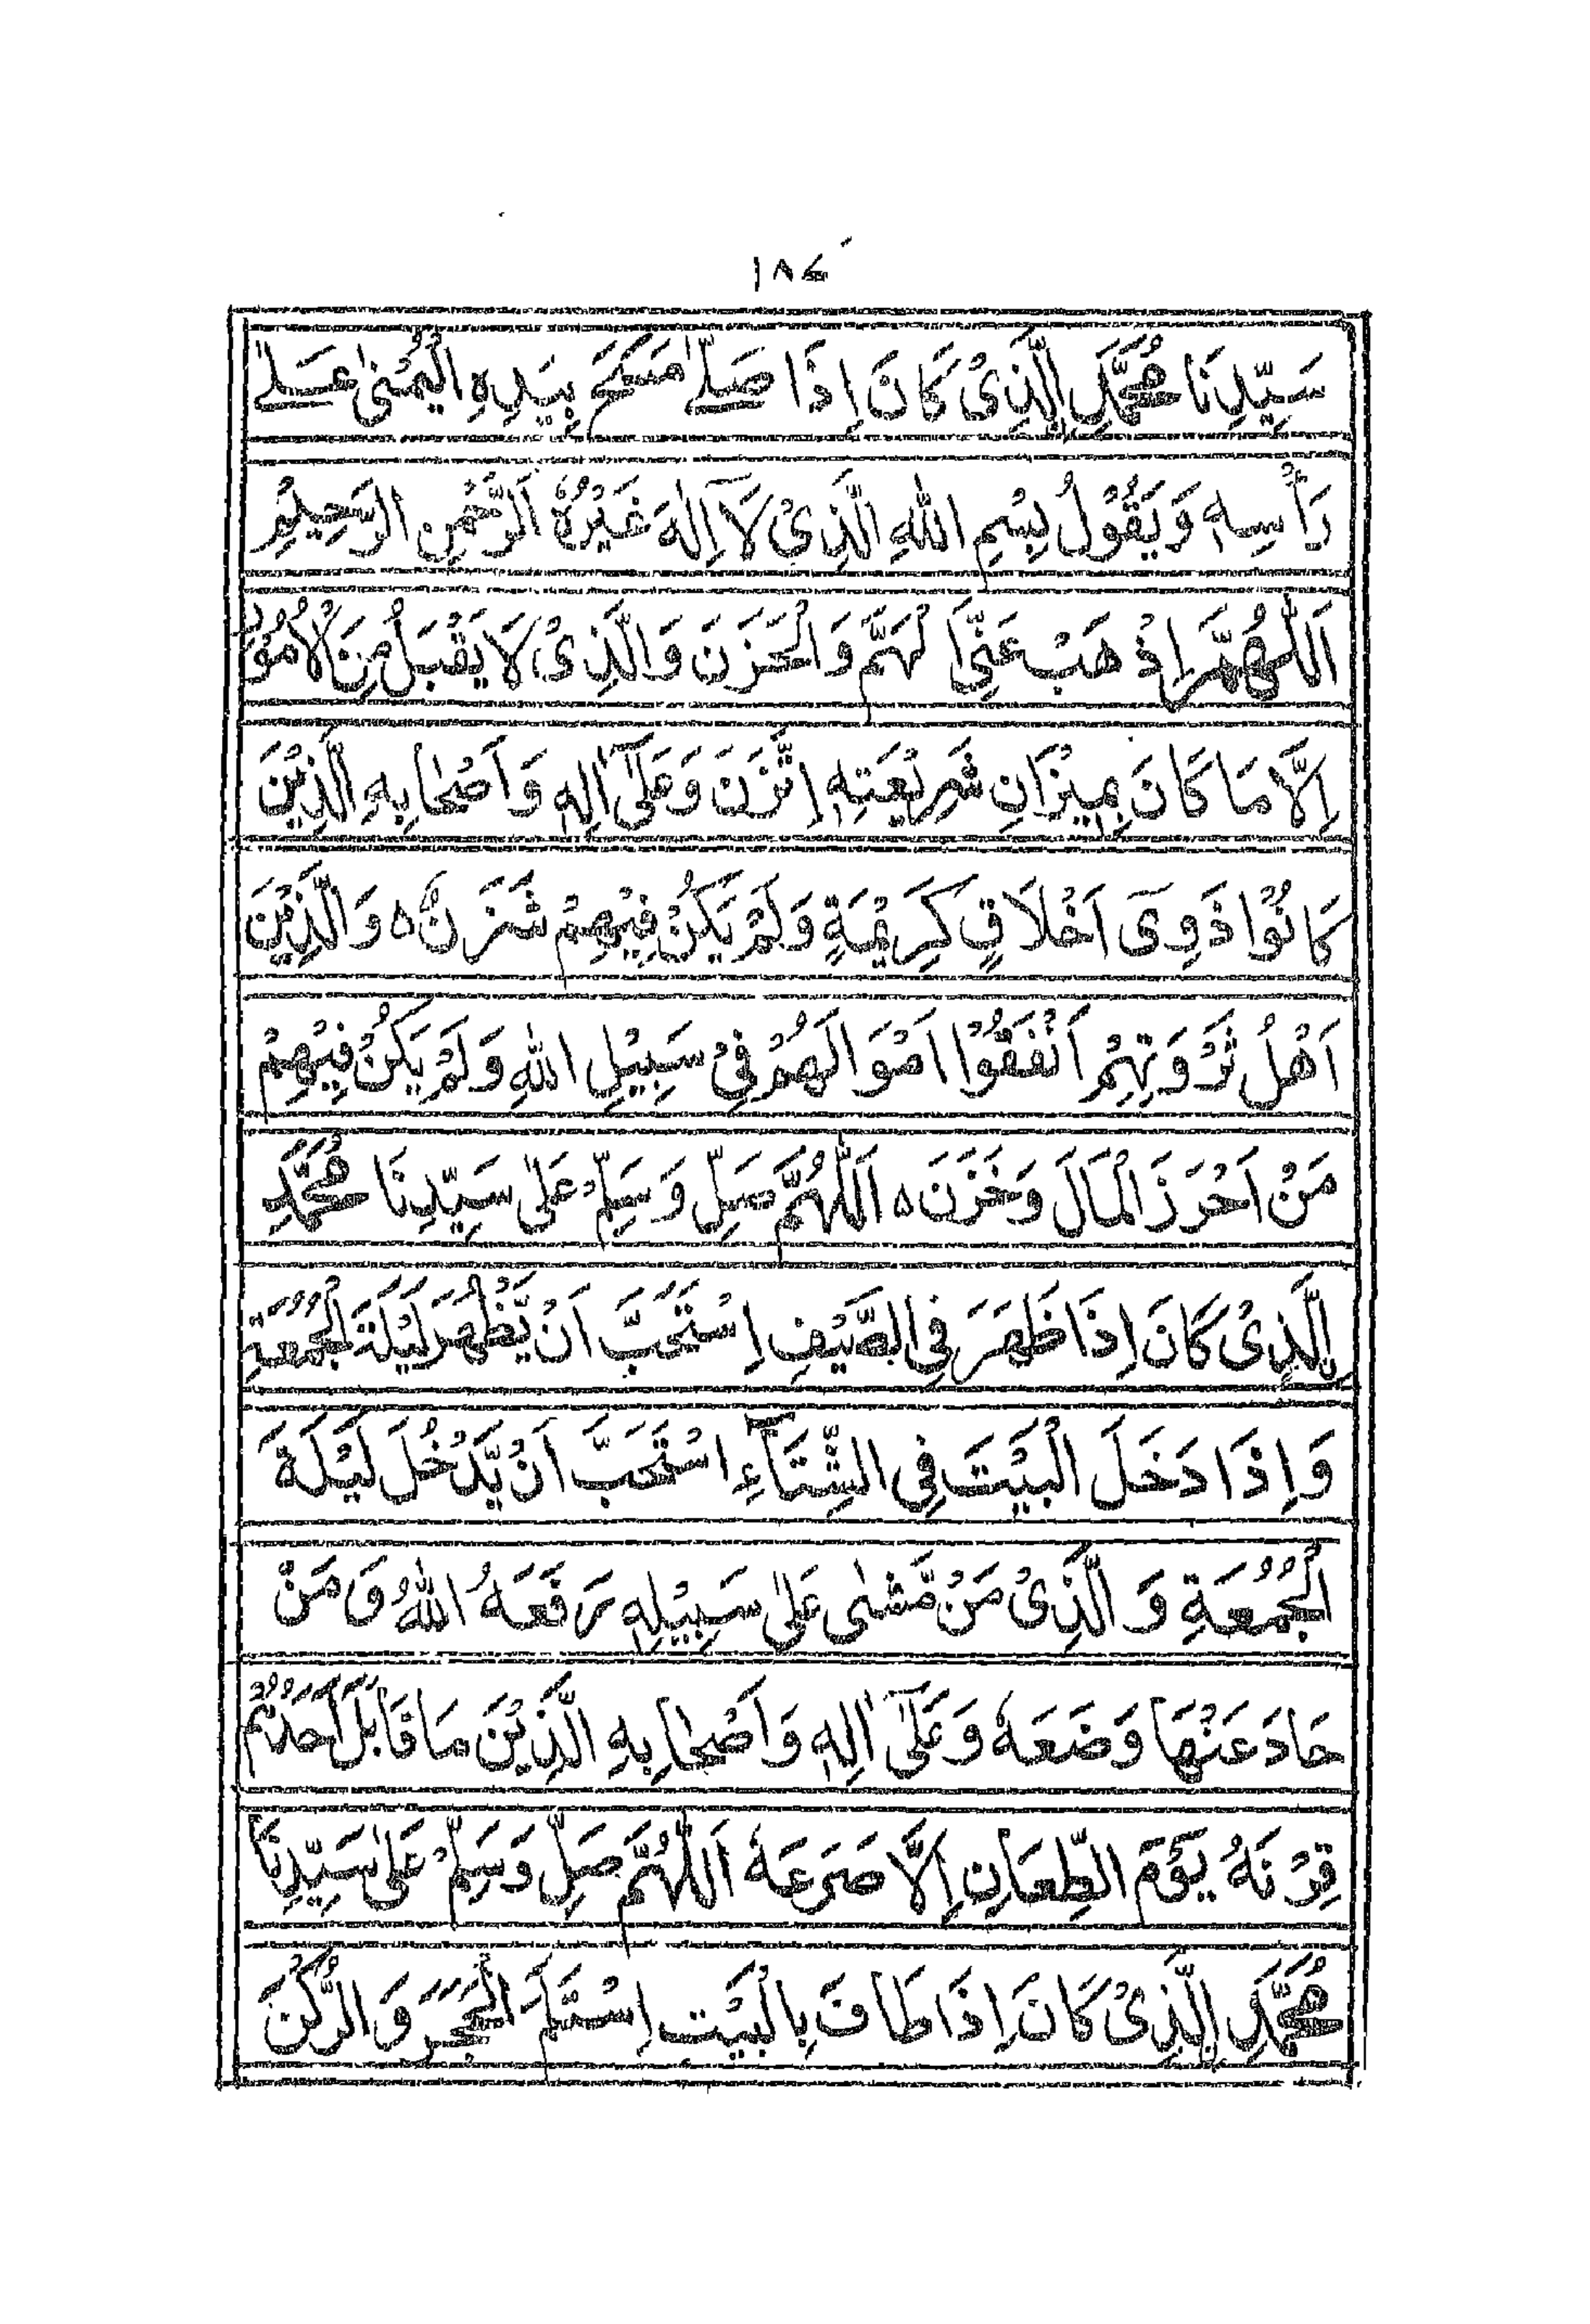 ١٨٤
سَيِّدِنَا مُحَمَّدِ ࣙالَّذِیْ كَانَ اِذَا صَلّٰے مَسَحَ بِيَدِهِ الْيُمْنٰی عَلٰے
رَاْسِهٖ وَيَقُوْلُ بِسْمِ اللّٰهِ الَّذِیْ لَآ اِلٰهَ غَيْرُهٗ اَلرَّحْمٰنِ الرَّحِيْمِ
اَللّٰهُمَّ اِذْهَبْ عَنِّی الْهَمَّ وَالْحَزَنَ وَالَّذِیْ لَا يَقْبَلُ مِنَ الْاُمُوْرِ
اِلَّا مَا كَانَ بِمِيْزَانِ شَرِيْعَتِهٖ اِتَّزَنَ وَعَلٰۤی اٰلِهٖ وَاَصْحَابِهِ الَّذِيْنَ
كَانُوْا ذَوِیْ اَخْلَاقٍ كَرِيْمَةٍ وَلَمْ يَكُنْ فِيْهِمْ شَزَنٌ ه وَالَّذِيْنَ
اَهْلُ ثَرْوَتِهِمْ اَنْفَقُوْا اَمْوَالَهُمْ فِیْ سَبِيْلِ اللّٰهِ وَلَمْ يَكُنْ فِيْهِمْ
مَنْ اَحْرَزَ الْمَالَ وَخَزَنَ ه اَللّٰهُمَّ صَلِّ وَسَلِّمْ عَلٰی سَيِّدِنَا مُحَمَّدِ
ࣙالَّذِیْ كَانَ اِذَا ظَهَرَ فِی الصَّيْفِ اِسْتَحَبَّ اَنْ يَّظْهَرَ لَيْلَةَ الْجُمُعَةِ
وَاِذَا دَخَلَ الْبَيْتَ فِی الشِّتَآءِ اسْتَحَبَّ اَنْ يَّدْخُلَ لَيْلَةَ
الْجُمُعَةِ وَ الَّذِیْ مَنْ مَّشٰی عَلٰی سَبِيْلِهٖ رَفَعَهُ اللّٰهُ وَ مَنْ
حَادَ عَنْهَا وَضَعَهٗ وَعَلٰۤی اٰلِهٖ وَاَصْحَابِهِ الَّذِيْنَ مَا قَابَلَ اَحَدُهُمْ
قِرْنَهُ يَوْمَ الطِّعَانِ اِلَّا صَرَعَهٗ اَللّٰهُمَّ صَلِّ وَسَلِّمْ عَلٰی سَيِّدِنَا
مُحَمَّدِ ࣙالَّذِیْ كَانَ اِذَا طَافَ بِالْبَيْتِ اِسْتَلَمَ الْحَجَرَ وَ الرُّكْنَ